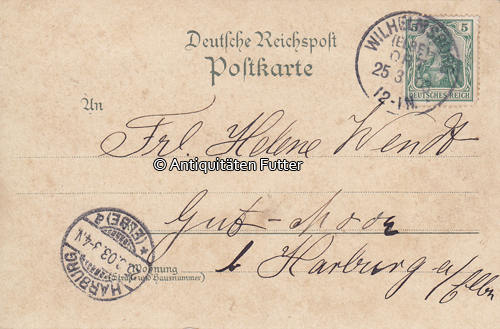 Deutsche Reichspost
Postkarte
5
DEUTSCHES REICH
WILHELMSBURG
(ELBE)
25 3
12-1N.
An
Frl. Helene Wendt
© Antiquitäten Futter
Gut-Moor
b Harburg a/Elbe
(Wohnung
(Straße und Hausnummer)
HARBURG
(ELBE) 2
.03.3-4N.